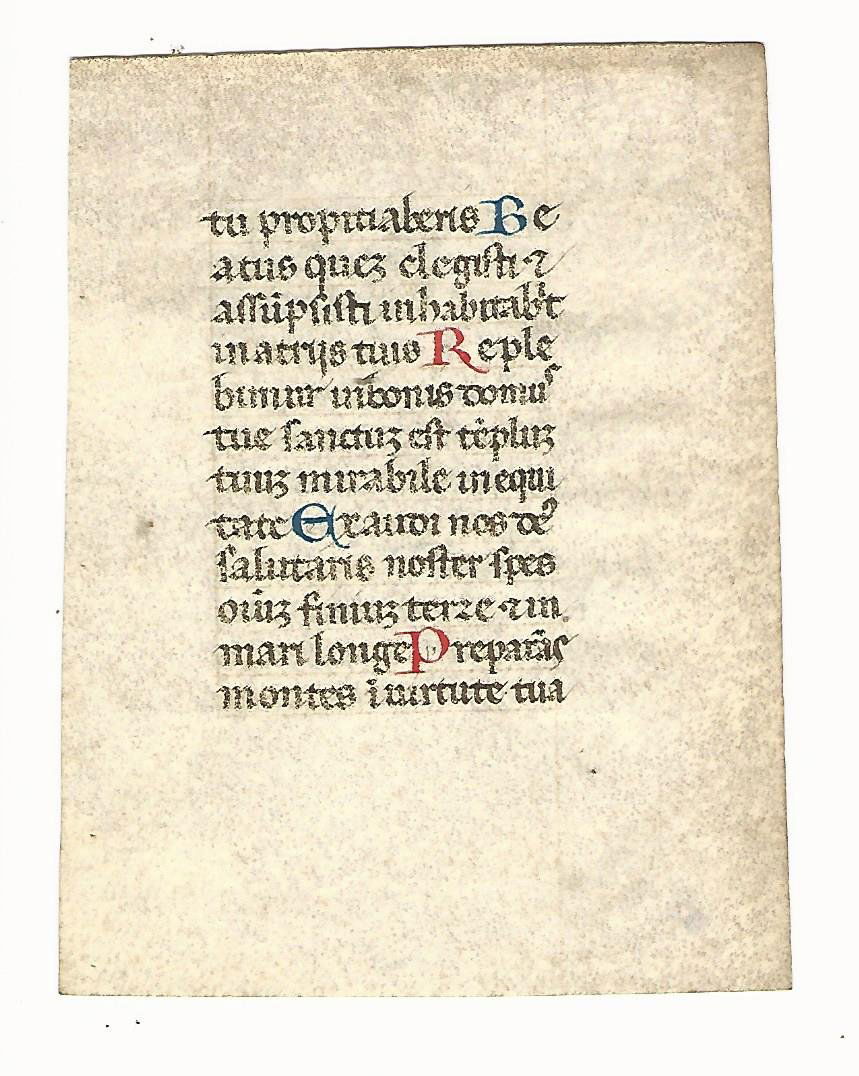 tu propitiaberis Be
atus quez elegisti ⁊
assūpsisti inhabitab't
in atrijs tuis Reple
bimur in bonis domus
tue sanctuz est tēpluz
tuuz mirabile in equi
tate Exaudi nos de⁹
salutaris noster spes
oīuz finiuz terre ⁊ in
mari longe Preparās
montes ī uirtute tua